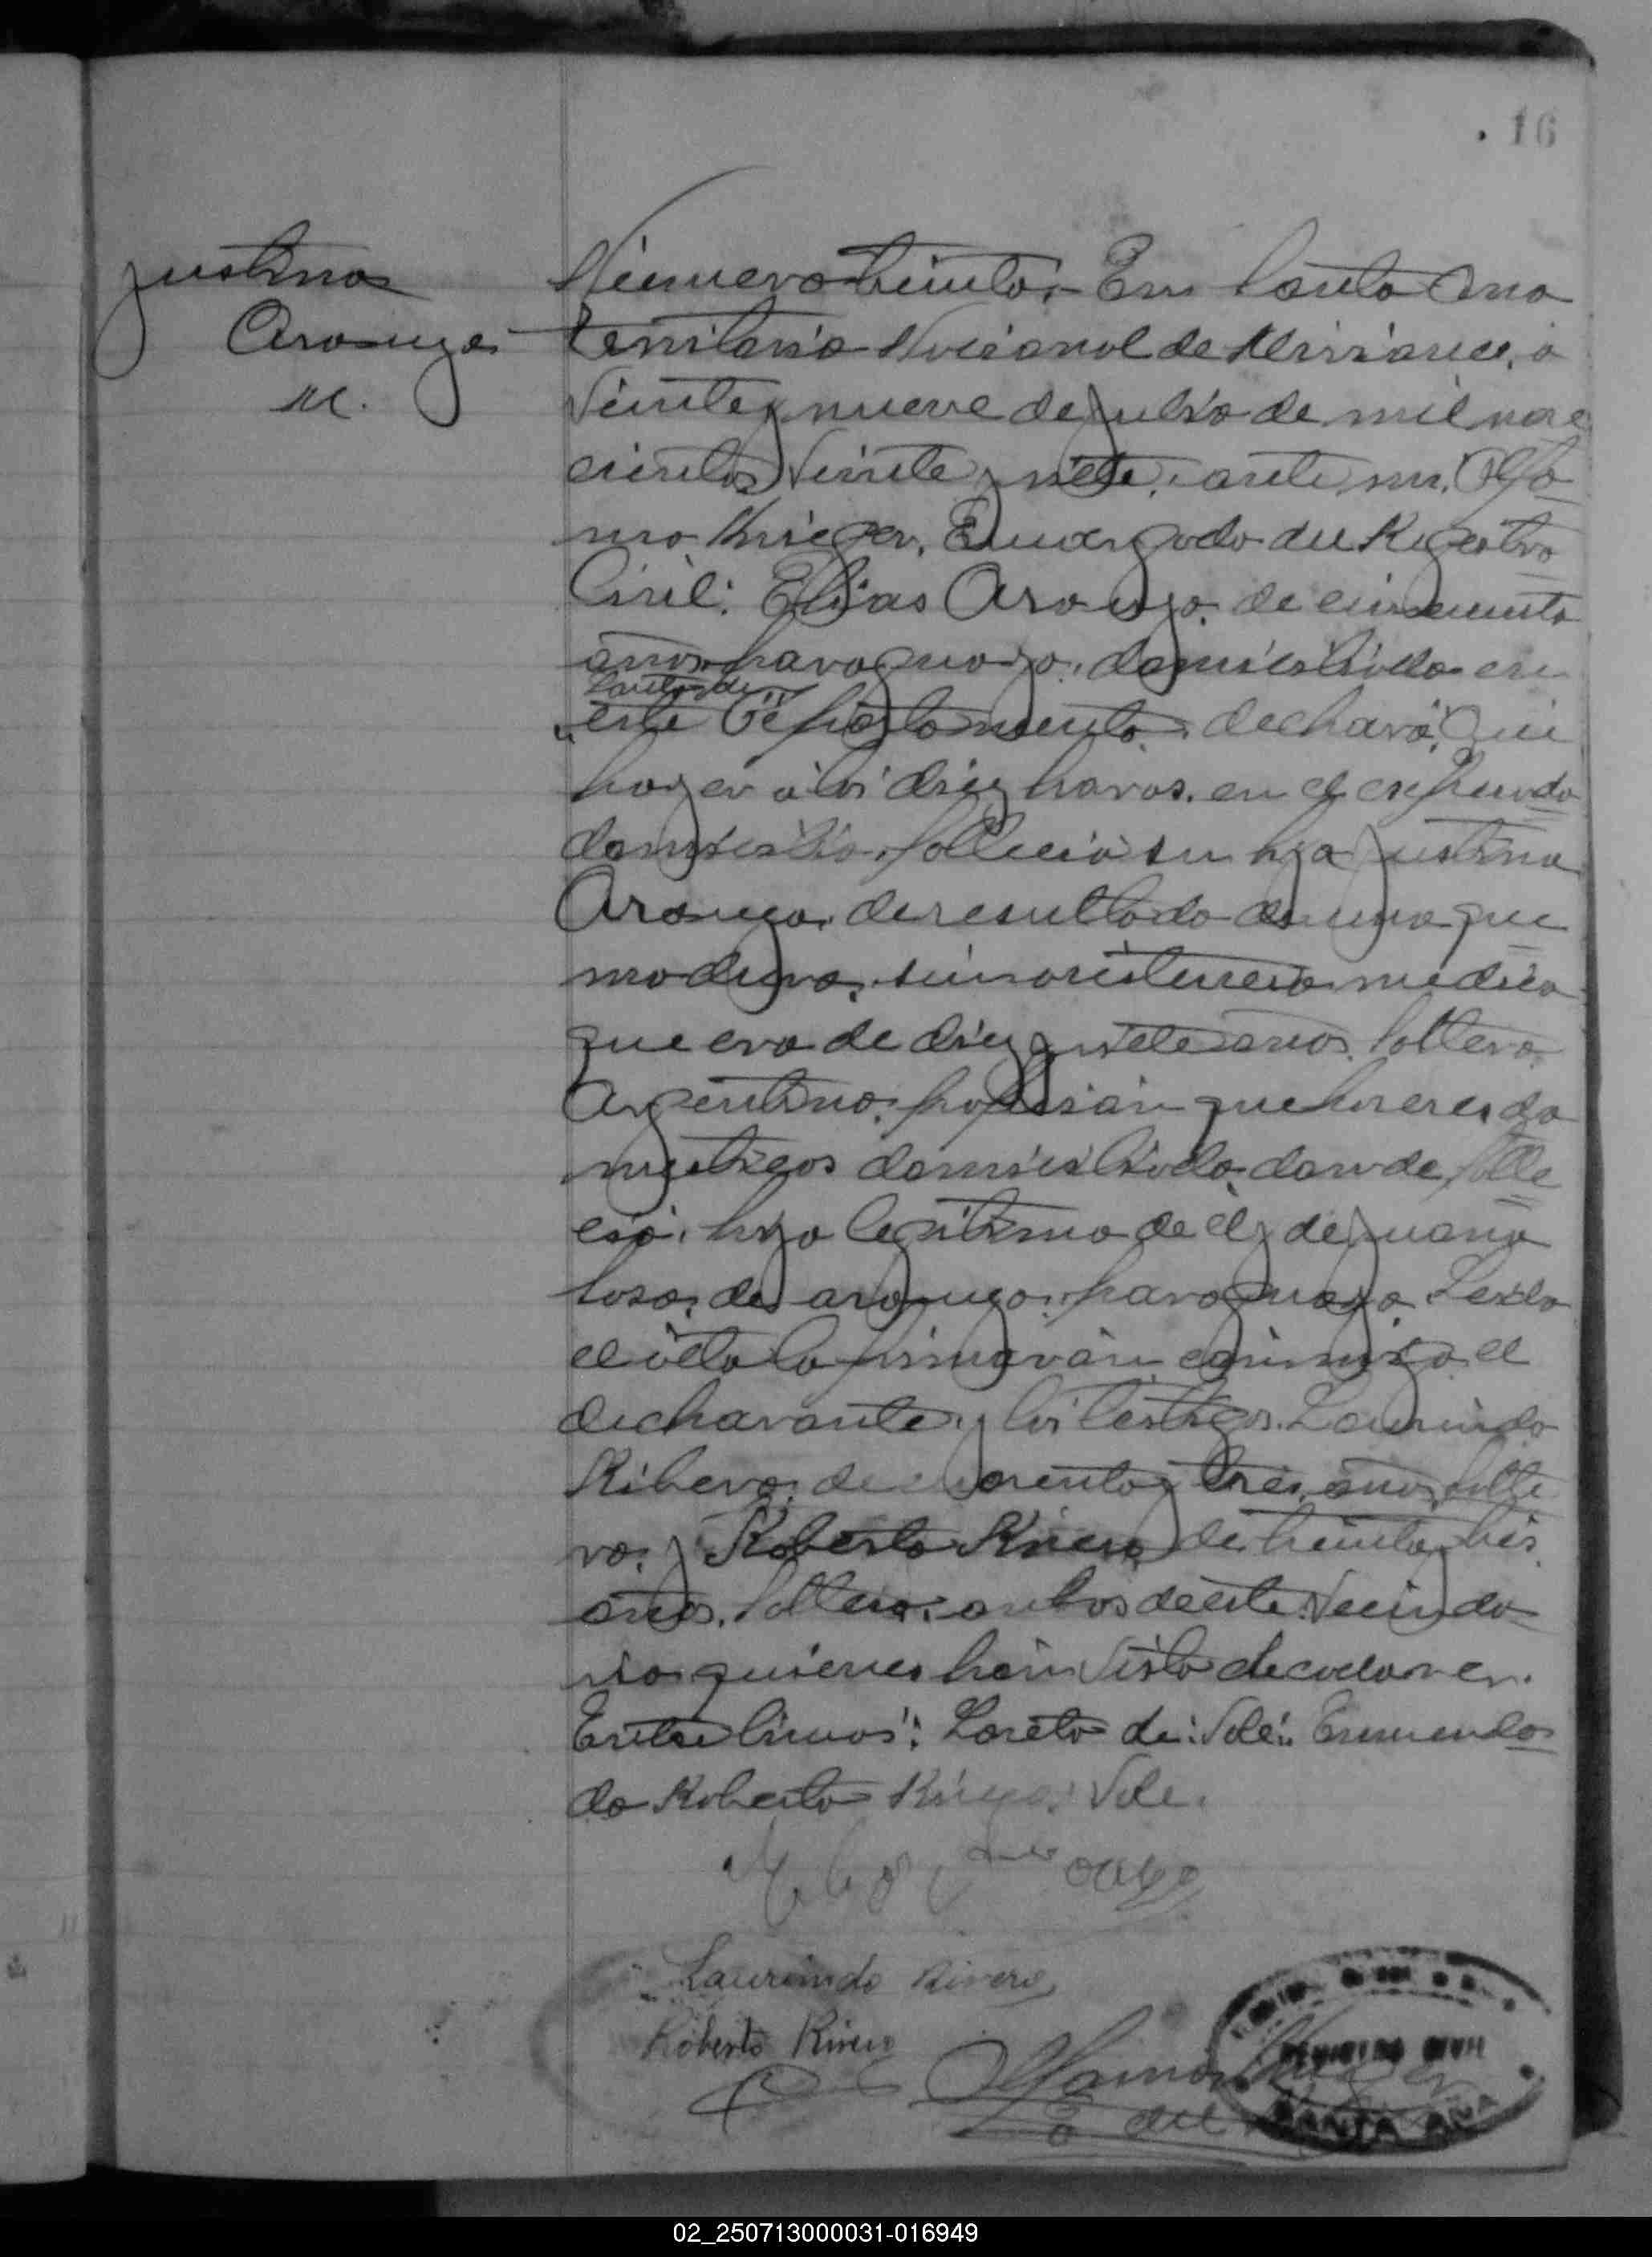 16
Justina
Arauyo
M.
Número treinta. En Santa Ana
territorio Nacional de Misiones, á
Veinte y nueve de Julio de mil nove
cientos Veinte y siete, ante mi,
Krieger, Encargado del Registro
Civil: Elias Arauyo, de cincuenta
años, paraguayo, domiciliado en
Loreto de
"este Departamento, declaró: Que
hoy á las diez horas, en el espresado
domicilio, falleció su hija Justina
Arauyo, de resultado de una que
madura, sin asistencia médica
que era de diez y siete años, soltera,
Argentina, profesión quehaceres do
mesticos domiciliada donde falle
ció, hija legitima de él y de Juana
Sosa, de arauyo, paraguaya. Leida
el ácta la firmarón conmigo el
declarante y los testigos. Laurindo
Ribero, de cuarenta y tres años, solte
ro, y Roberto Rivero de treinta y tres
años, soltero, ambos de este Vecinda
rio quienes hán visto el cadaver.
Entre lineas": Loreto de: Vale: Enmenda
do Roberto Rivero: Vale.
Laurindo Rivero
Roberto Rivero
REGISTRO CIVIL
SANTA ANA
02_250713000031-016949